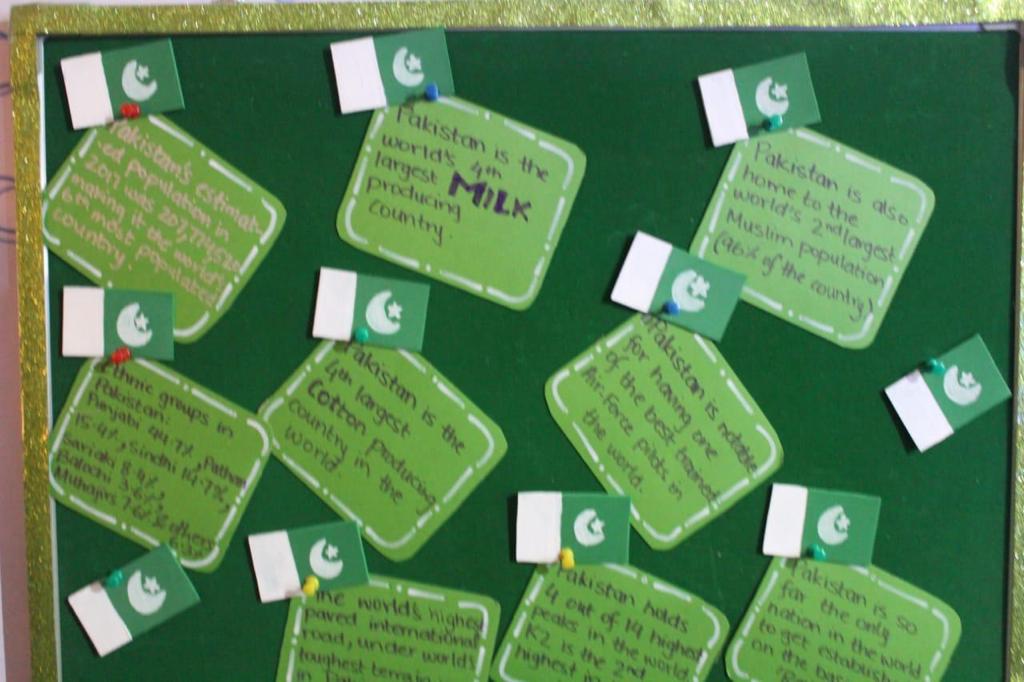 Pakistan's estimat-
ed population in
2017 was
making it the world's
6th most populated
country.
Pakistan is the
world's 4th
largest MILK
producing
country.
Pakistan is also
home to the
world's 2nd largest
Muslim population
(96% of the country)
Ethnic groups in
Pakistan:
Punjabi 44.7%, Pathan
15.4%, Sindhi 14.1%,
Sariaki 8.4%,
Balochi 3.6%,
Muhajirs 7.6% others
Pakistan is the
4th largest
Cotton producing
country in the
world.
Pakistan is notable
for having one
of the best trained
Air Force pilots in
the world.
The world's highest
paved international
road, under worlds
toughest terrain
in
Pakistan holds
4 out of 14 highest
peaks in the world
K2 is the 2nd
highest in
Pakistan is so
far the only
nation in the world
to get establish
on the